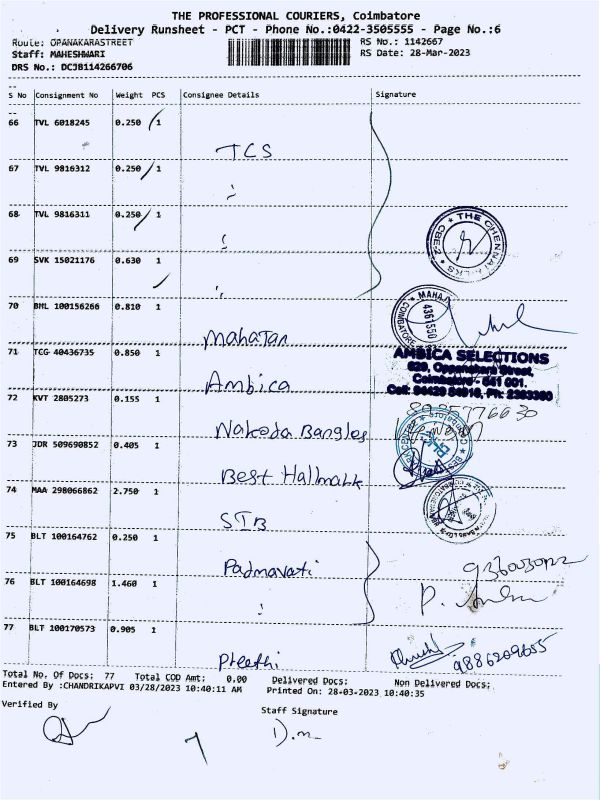 THE PROFESSIONAL COURIERS, Coimbatore
Delivery Runsheet - PCT - Phone No.:0422-3505555 - Page No.:6
Route: OPANAKARASTREET RS No.: 1142667
Staff: MAHESHWARI RS Date: 28-Mar-2023
DRS No.: DCJB114266706
S No Consignment No Weight PCS Consignee Details Signature
66 TVL 6018245 0.250 1
TCS
67 TVL 9816312 0.250 1
68 TVL 9816311 0.250 1
THE CHENNAI SILKS
CBE-2
69 SVK 15021176 0.630 1
70 BML 100156266 0.810 1
MAHAJAN
COIMBATORE
4361550
Mahajan
71 TCG 40436735 0.850 1
AMBICA SELECTIONS
629, Oppanakara Street,
Coimbatore - 641 001.
Ambica
72 KVT 2805273 0.155 1
Nakoda Bangles
73 JDR 509690852 0.405 1
Best Hallmark
74 MAA 298066862 2.750 1
STB
75 BLT 100164762 0.250 1
Padmavati
76 BLT 100164698 1.460 1
77 BLT 100170573 0.905 1
Preethi
9886209685
Total No. Of Docs: 77 Total COD Amt: 0.00 Delivered Docs: Non Delivered Docs:
Entered By :CHANDRIKAPVI 03/28/2023 10:40:11 AM Printed On: 28-03-2023 10:40:35
Verified By Staff Signature